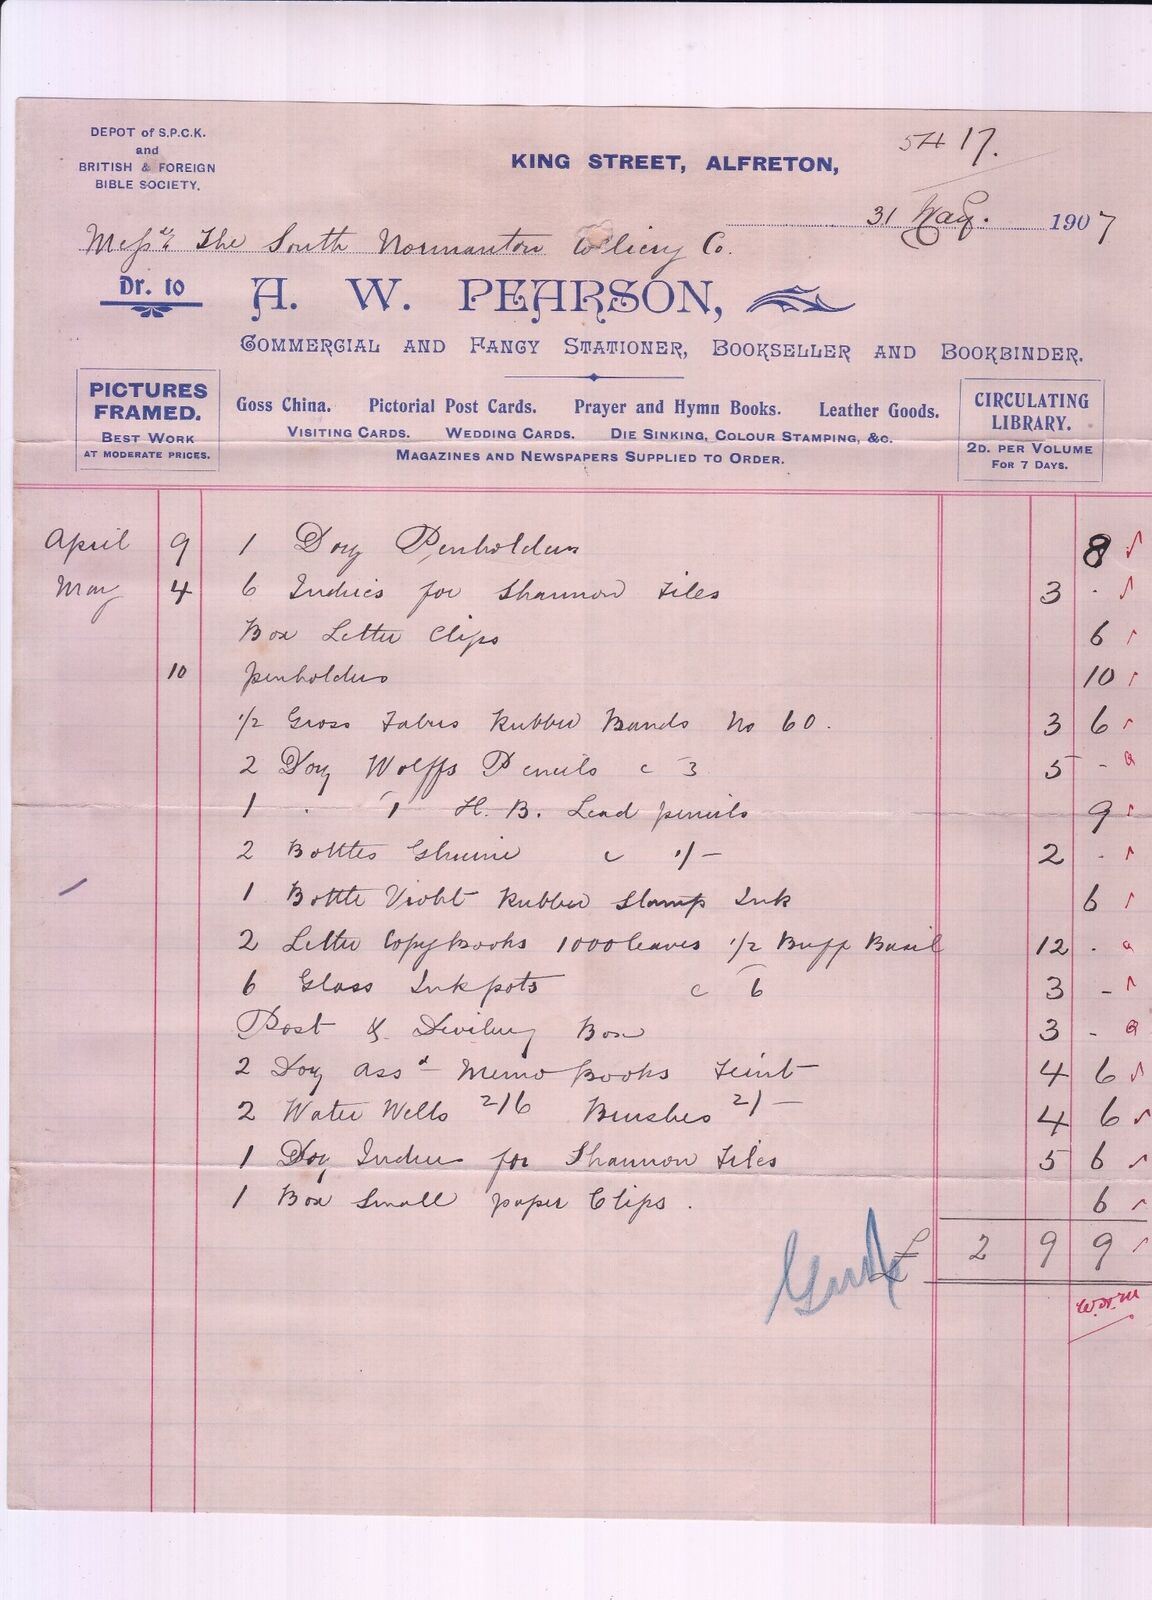 DEPOT of S.P.C.K.
and
BRITISH & FOREIGN
BIBLE SOCIETY.
KING STREET, ALFRETON,
17.
31 May. 1907
Messrs The South Normanton Colliery Co.
Dr. to A. W. PEARSON,
COMMERCIAL AND FANCY STATIONER, BOOKSELLER AND BOOKBINDER.
PICTURES
FRAMED.
BEST WORK
AT MODERATE PRICES.
Goss China. Pictorial Post Cards. Prayer and Hymn Books. Leather Goods.
VISITING CARDS. WEDDING CARDS. DIE SINKING, COLOUR STAMPING, &c.
MAGAZINES AND NEWSPAPERS SUPPLIED TO ORDER.
CIRCULATING
LIBRARY.
2D. PER VOLUME
FOR 7 DAYS.
April 9 1 Doz Penholders 8
May 4 6 Indices for Shannon Files 3 .
Box Letter Clips 6
10 penholders 10
1/2 Gross Rubber Bands No 60. 3 6
2 Doz Wolffs Pencils c 3 5 -
1 . " H.B. Lead pencils 9
2 Bottles c 1/- 2 .
1 Bottle Violet Rubber Stamp Ink 6
2 Letter Copybooks 1000 leaves 1/2 Buff Basil 12 .
6 Glass Inkpots c 6 3 -
Post & Delivery Box 3 -
2 Doz assd Memo Books Feint 4 6
2 Water Wells 2/6 Brushes 2/- 4 6
1 Doz Indices for Shannon Files 5 6
1 Box Small paper Clips. 6
£ 2 9 9